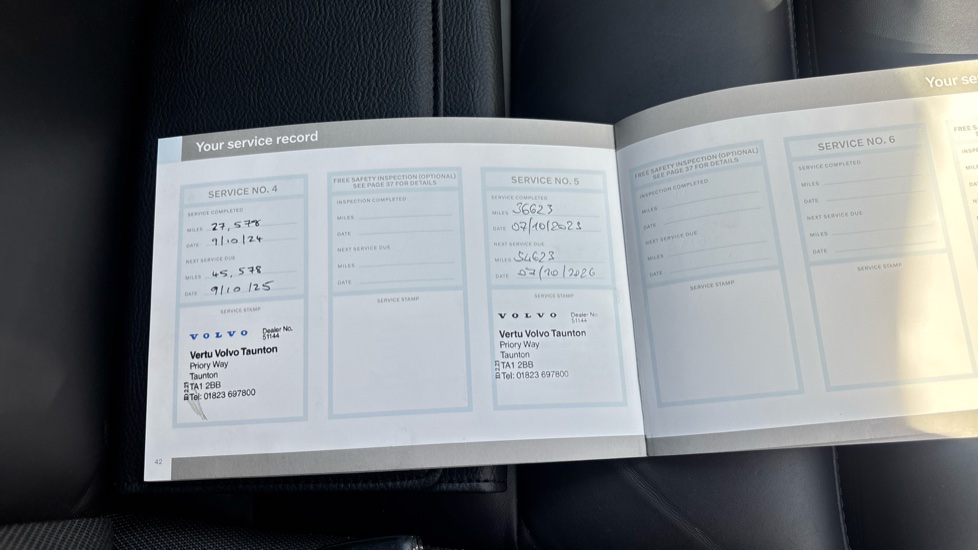 Your service record
SERVICE NO. 4
SERVICE COMPLETED
MILES 27,578
DATE 9/10/24
NEXT SERVICE DUE
MILES 45,578
DATE 9/10/25
SERVICE STAMP
VOLVO Dealer No. 51144
Vertu Volvo Taunton
Priory Way
Taunton
TA1 2BB
Tel: 01823 697800
42
FREE SAFETY INSPECTION (OPTIONAL)
SEE PAGE 37 FOR DETAILS
INSPECTION COMPLETED
MILES
DATE
NEXT SERVICE DUE
MILES
DATE
SERVICE STAMP
SERVICE NO. 5
SERVICE COMPLETED
MILES 36623
DATE 07/10/2025
NEXT SERVICE DUE
MILES 54623
DATE 07/10/2026
SERVICE STAMP
VOLVO Dealer No. 51144
Vertu Volvo Taunton
Priory Way
Taunton
TA1 2BB
Tel: 01823 697800
Your se
FREE SAFETY INSPECTION (OPTIONAL)
SEE PAGE 37 FOR DETAILS
INSPECTION COMPLETED
MILES
DATE
NEXT SERVICE DUE
MILES
DATE
SERVICE STAMP
SERVICE NO. 6
SERVICE COMPLETED
MILES
DATE
NEXT SERVICE DUE
MILES
DATE
SERVICE STAMP
FREE S
INSPE
MILE
DA